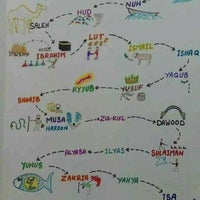 NUH
HUD
SALEH
IBRAHIM
LUT
ISMAIL
ISHAQ
YAQUB
YUSUF
AYYUB
SHOAIB
MUSA
HAROON
ZUL-KIFL
DAWOOD
SULAIMAN
ILYAS
ALYASA
YUNUS
ZAKRIA
YAHYA
ISA